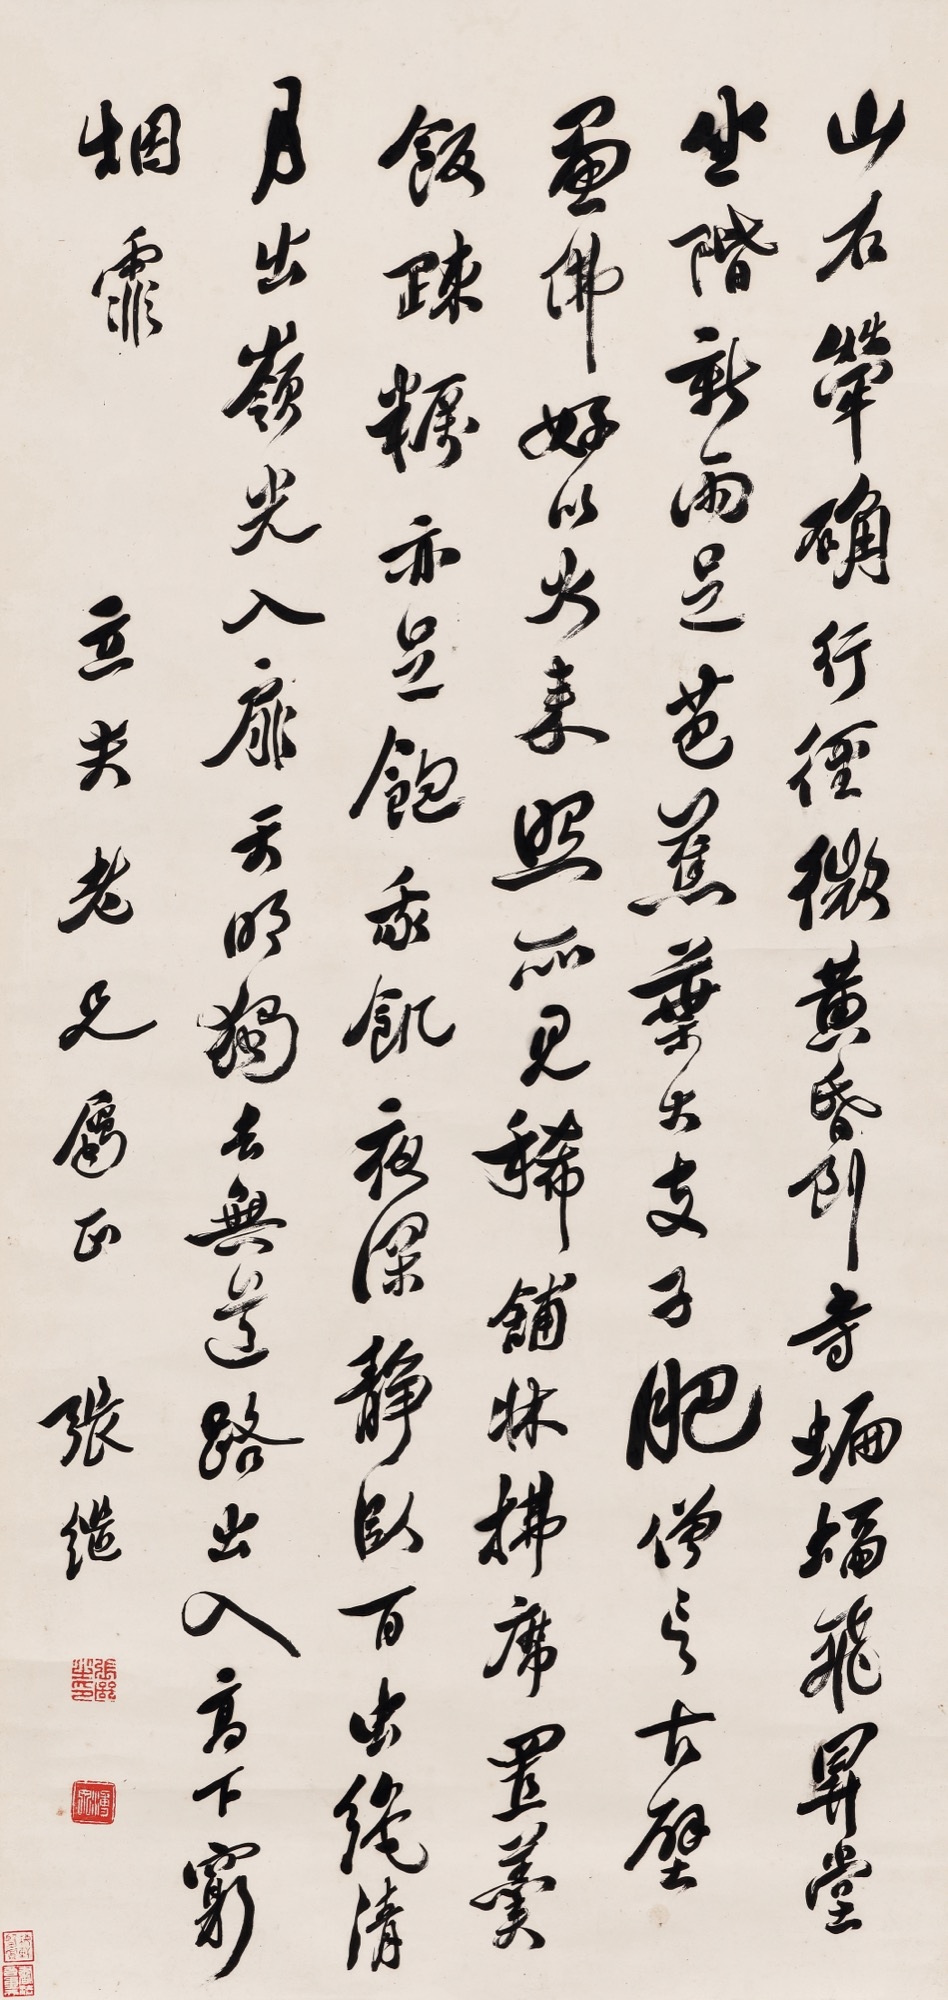 山石犖确行徑微黃昏到寺蝙蝠飛昇堂
坐階新雨足芭蕉葉大支子肥僧言古壁
畫佛好以火來照所見稀鋪牀拂席置羹
飯疎糲亦足飽我飢夜深靜臥百虫絕清
月出嶺光入扉天明獨去無道路出入高下窮
烟霏
立夫老兄屬正
張繼